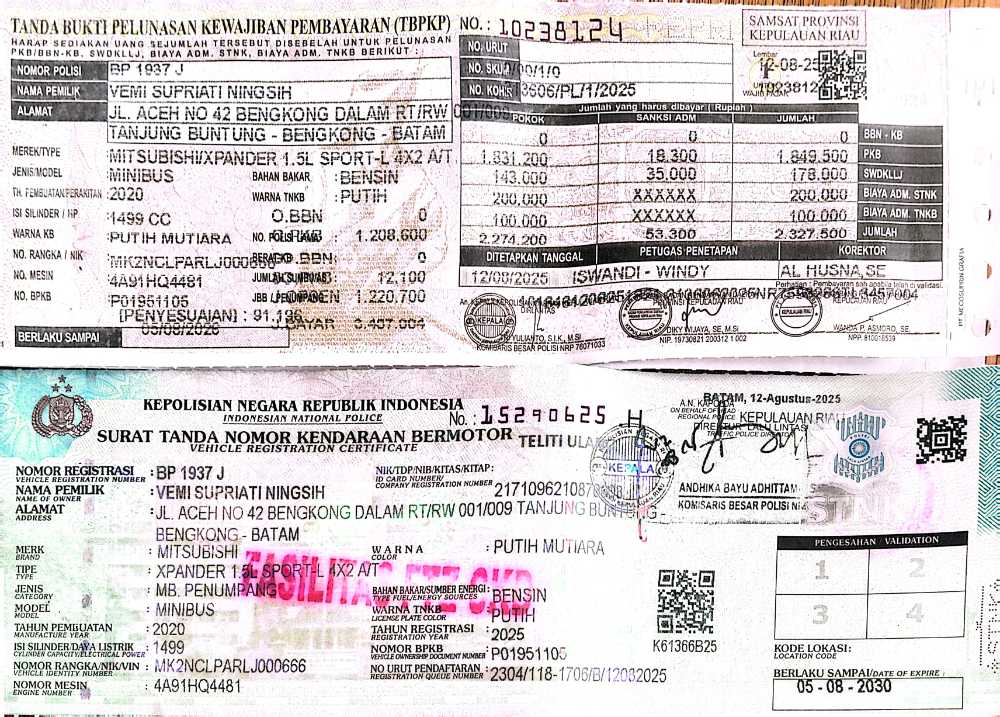 TANDA BUKTI PELUNASAN KEWAJIBAN PEMBAYARAN (TBPKP) NO. : 10238124
HARAP SEDIAKAN UANG SEJUMLAH TERSEBUT DISEBELAH UNTUK PELUNASAN
PKB/BBN-KB, SWDKLLJ, BIAYA ADM. STNK, BIAYA ADM. TNKB BERIKUT :
SAMSAT PROVINSI
KEPULAUAN RIAU
Lembar
12-08-25
WAJIB PAJAK
NOMOR POLISI BP 1937 J
NAMA PEMILIK VEMI SUPRIATI NINGSIH
ALAMAT JL. ACEH NO 42 BENGKONG DALAM RT/RW 001/009
TANJUNG BUNTUNG - BENGKONG - BATAM
MEREK/TYPE : MITSUBISHI/XPANDER 1.5L SPORT-L 4X2 A/T
JENIS/MODEL : MINIBUS BAHAN BAKAR : BENSIN
TH. PEMBUATAN/PERAKITAN : 2020 WARNA TNKB : PUTIH
ISI SILINDER / HP : 1499 CC O.BBN 0
WARNA KB : PUTIH MUTIARA NO. POLISI LAMA : 1.208.600
NO. RANGKA / NIK : MK2NCLPARLJ000666 BBN : 0
NO. MESIN : 4A91HQ4481 12,100
NO. BPKB : P01951105 : 1,220,700
[PENYESUAIAN] : 91.196
BERLAKU SAMPAI 05/08/2026 J.BAYAR 3,457,004
NO. URUT
NO. SKUM /00/1/0
NO. KOHIR 3606/PL/1/2025
Jumlah yang harus dibayar ( Rupiah )
POKOK SANKSI ADM JUMLAH
0 0 0 BBN - KB
1,831,200 18,300 1,849,500 PKB
143,000 35,000 178,000 SWDKLLJ
200,000 XXXXXX 200,000 BIAYA ADM. STNK
100,000 XXXXXX 100,000 BIAYA ADM. TNKB
2,274,200 53,300 2,327,500 JUMLAH
DITETAPKAN TANGGAL PETUGAS PENETAPAN KOREKTOR
12/08/2025 ISWANDI - WINDY AL HUSNA,SE
Perhatian : Pembayaran sah apabila telah di validasi.
DIRLANTAS
KEPALA
YULIANTO, S.I.K., M.Si
KOMISARIS BESAR POLISI NRP 76071033
DIKY WIJAYA, SE, M.Si
NIP. 19730821 200312 1 002
WANDA P. ASMORO, SE.
NPP. 810016539
KEPOLISIAN NEGARA REPUBLIK INDONESIA
INDONESIAN NATIONAL POLICE
No.: 15290625 H
SURAT TANDA NOMOR KENDARAAN BERMOTOR
VEHICLE REGISTRATION CERTIFICATE
TELITI ULANG
BATAM, 12-Agustus-2025
A.N. KAPOLDA
ON BEHALF OF HEAD
REGIONAL POLICE
KEPULAUAN RIAU
DIREKTUR LALU LINTAS
TRAFFIC POLICE DIRECTOR
KEPALA
ANDHIKA BAYU ADHITTAMA
KOMISARIS BESAR POLISI
STNK
NOMOR REGISTRASI : BP 1937 J
VEHICLE REGISTRATION NUMBER
NIK/TDP/NIB/KITAS/KITAP :
ID CARD NUMBER/
COMPANY REGISTRATION NUMBER
NAMA PEMILIK : VEMI SUPRIATI NINGSIH
NAME OF OWNER
ALAMAT : JL. ACEH NO 42 BENGKONG DALAM RT/RW 001/009 TANJUNG BUNTUNG -
ADDRESS
BENGKONG - BATAM
MERK : MITSUBISHI
BRAND
WARNA : PUTIH MUTIARA
COLOR
TIPE : XPANDER 1.5L SPORT-L 4X2 A/T
TYPE
FASILITAS FTZ CKD
JENIS : MB. PENUMPANG
CATEGORY
BAHAN BAKAR/SUMBER ENERGI : BENSIN
TYPE FUEL/ENERGY SOURCES
MODEL : MINIBUS
MODEL
WARNA TNKB : PUTIH
LICENSE PLATE COLOR
TAHUN PEMBUATAN : 2020
MANUFACTURE YEAR
TAHUN REGISTRASI : 2025
REGISTRATION YEAR
ISI SILINDER/DAYA LISTRIK : 1499
CYLINDER CAPACITY/ELECTRICAL POWER
NOMOR BPKB : P01951105
VEHICLE OWNERSHIP DOCUMENT NUMBER
NOMOR RANGKA/NIK/VIN : MK2NCLPARLJ000666
VEHICLE IDENTITY NUMBER
NO URUT PENDAFTARAN : 2304/118-1706/B/12082025
REGISTRATION QUEUE NUMBER
NOMOR MESIN : 4A91HQ4481
ENGINE NUMBER
K61366B25
PENGESAHAN / VALIDATION
1 2
3 4
KODE LOKASI:
LOCATION CODE
BERLAKU SAMPAI/DATE OF EXPIRE :
05 - 08 - 2030